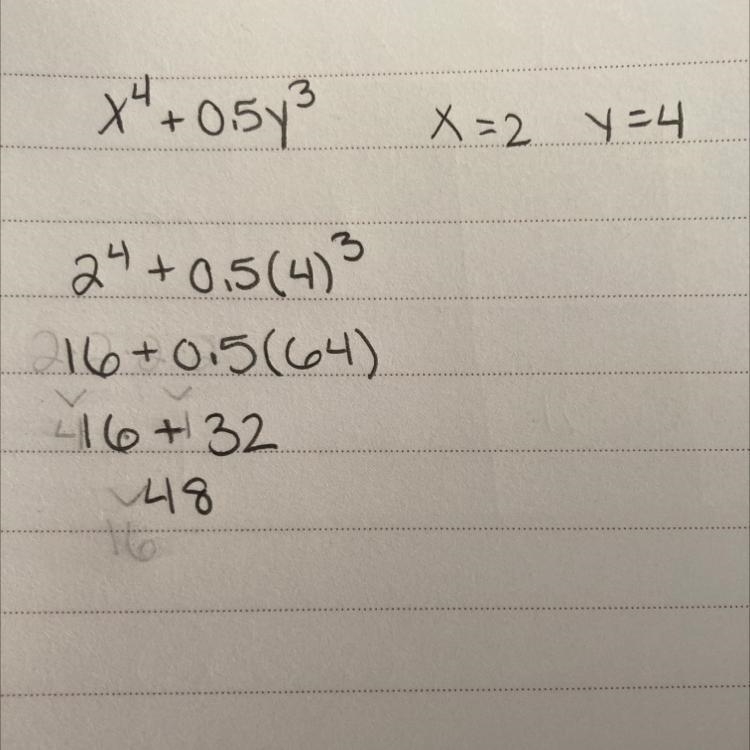 x⁴ + 0.5y³ x = 2 y = 4
2⁴ + 0.5(4)³
16 + 0.5(64)
16 + 32
48
16